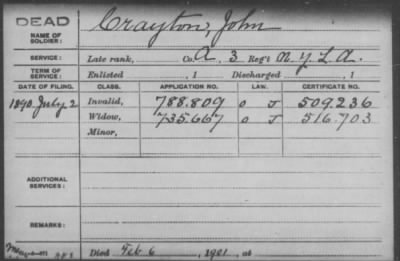 DEAD
NAME OF SOLDIER: Crayton, John
SERVICE: Late rank, Co. A, 3 Reg't N.Y.L.A.
TERM OF SERVICE: Enlisted , 1 Discharged , 1
DATE OF FILING. CLASS. APPLICATION NO. LAW. CERTIFICATE NO.
1890 July 2 Invalid, 788.809 O J 509.236
Widow, 735.667 O J 516.703
Minor,
ADDITIONAL SERVICES:
REMARKS:
Died Feb 6, 1901, at